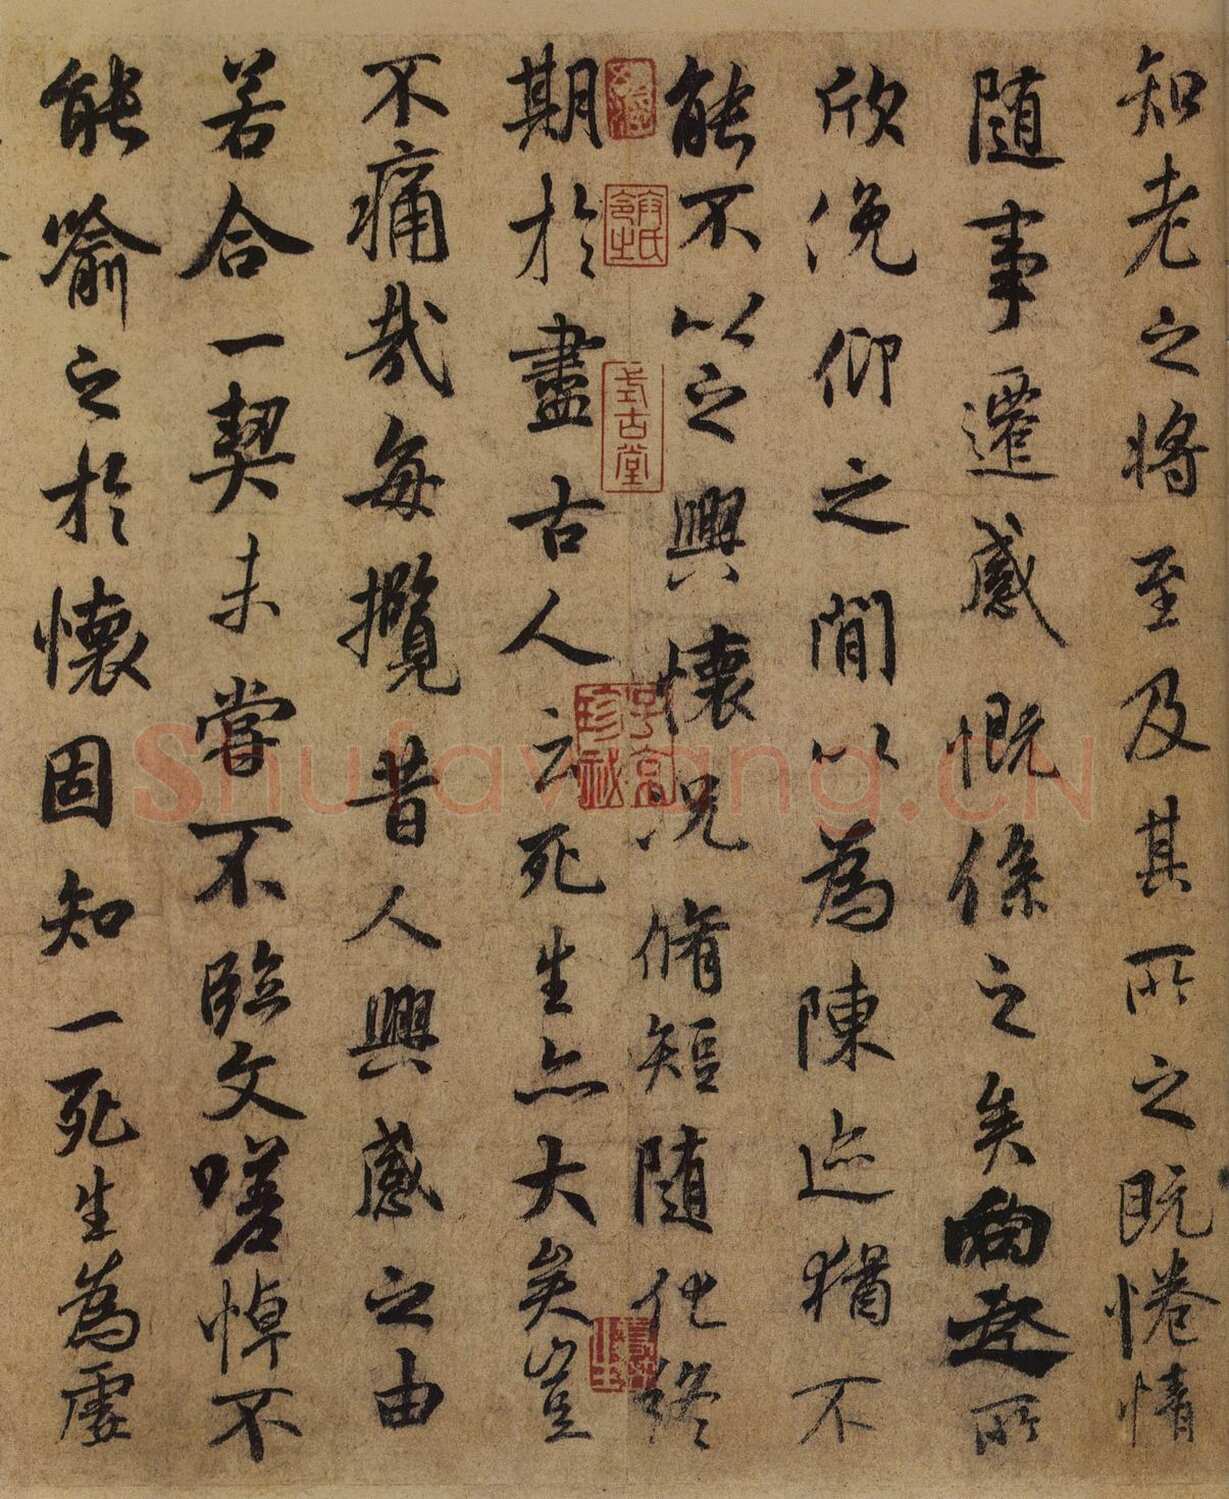 知老之将至及其所之既惓情
随事遷感慨係之矣向之所
欣俛仰之閒以為陳迹猶不
能不以之興懷況脩短随化終
期於盡古人云死生亦大矣豈
不痛哉每攬昔人興感之由
若合一契未嘗不臨文嗟悼不
能喻之於懷固知一死生為虛
式古堂
子京珍祕
Shufawang.CN